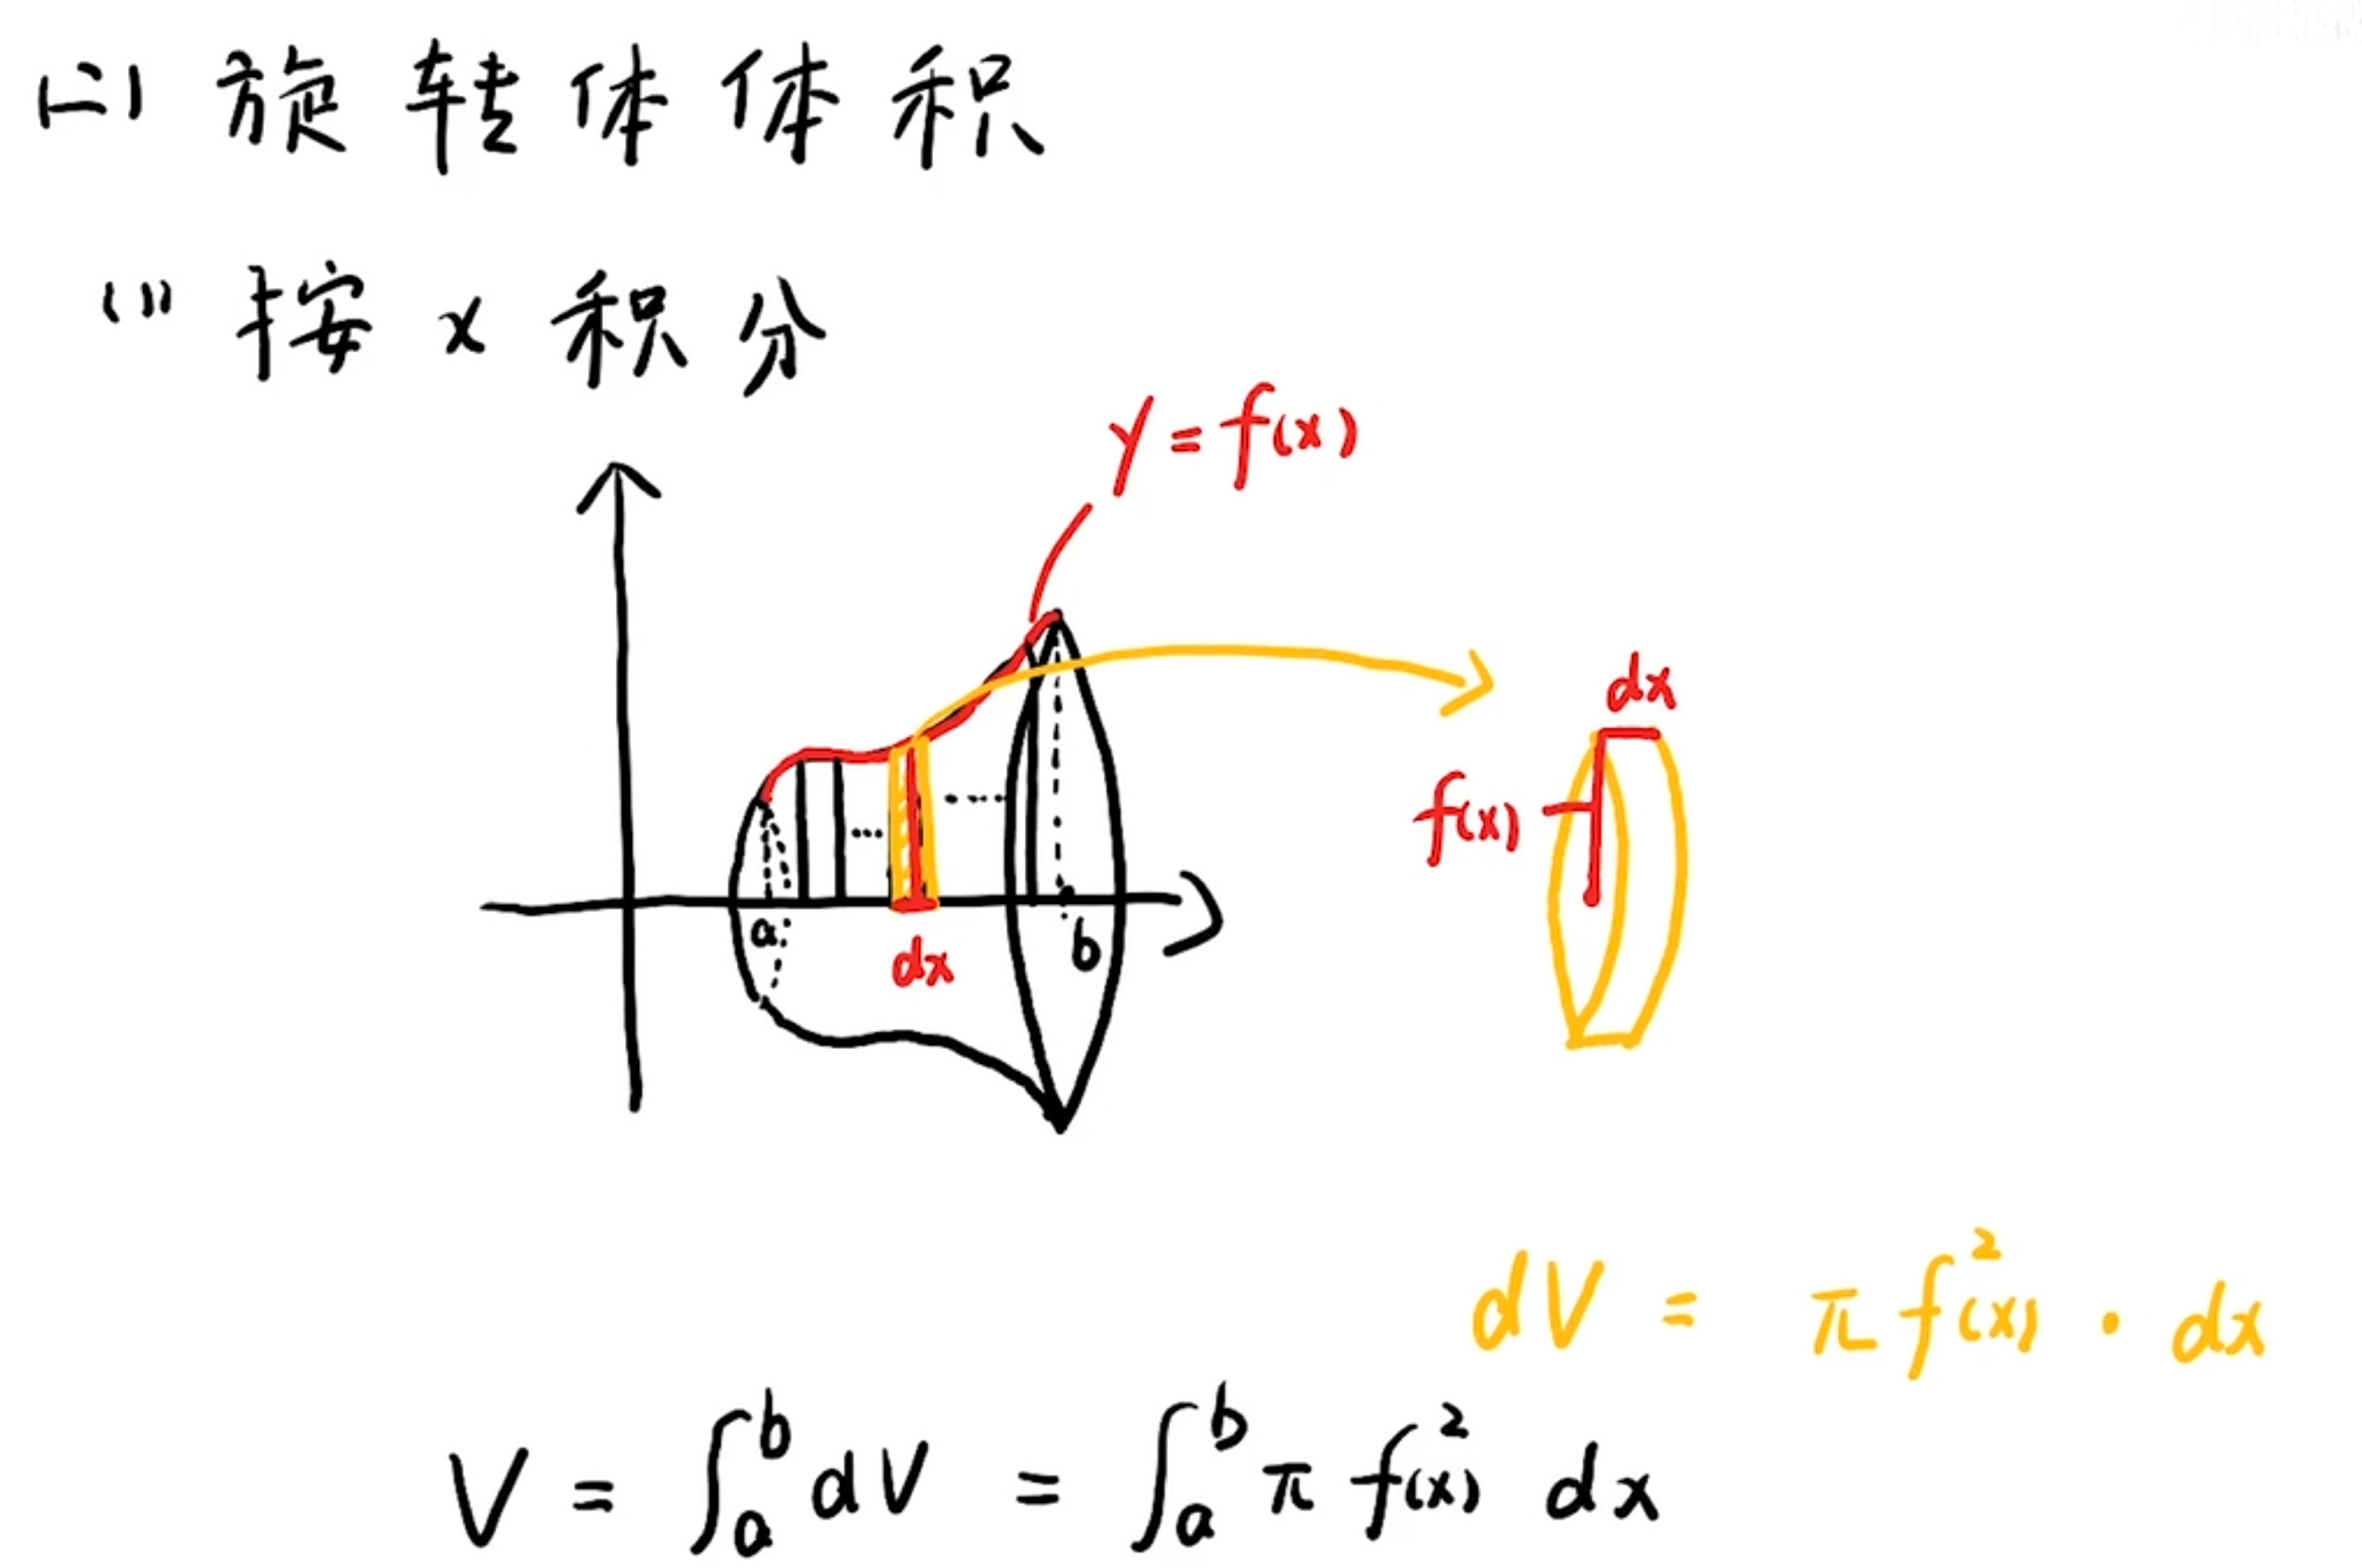 (二) 旋转体体积
(1) 按 x 积分
y = f(x)
dx
f(x)
a
b
dx
dV = π f²(x) · dx
V = ∫ₐᵇ dV = ∫ₐᵇ π f²(x) dx